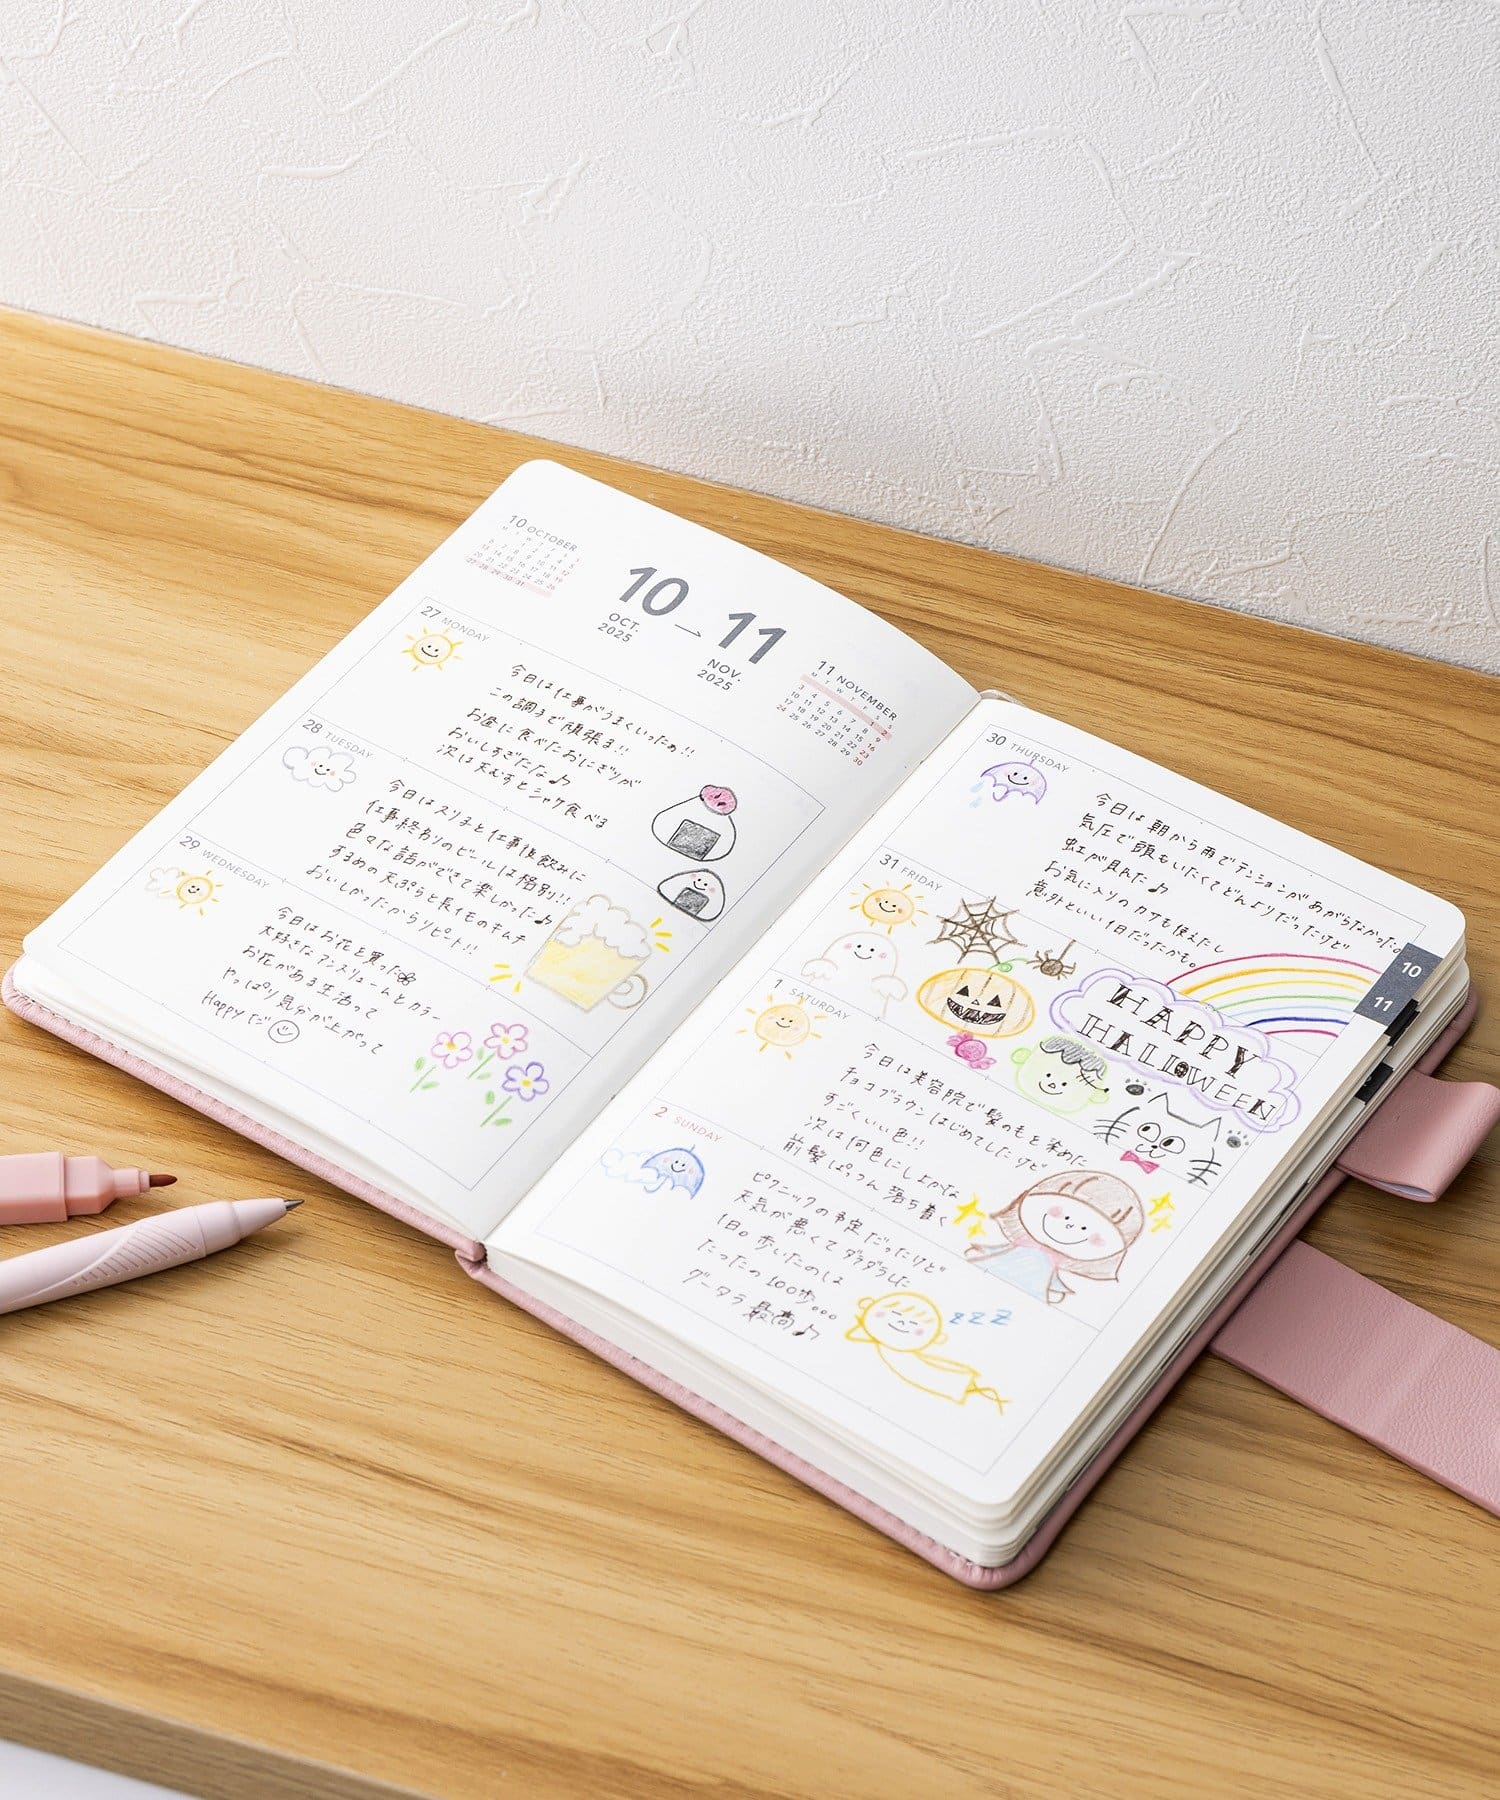 10 OCTOBER
M T W T F S S
1 2 3 4 5
6 7 8 9 10 11 12
13 14 15 16 17 18 19
20 21 22 23 24 25 26
27 28 29 30 31
10 → 11
OCT.
2025
NOV.
2025
11 NOVEMBER
M T W T F S S
1 2
3 4 5 6 7 8 9
10 11 12 13 14 15 16
17 18 19 20 21 22 23
24 25 26 27 28 29 30
27 MONDAY
今日は仕事がうまくいったぁ!!
この調子で頑張る!!
お昼に食べたおにぎりが
おいしすぎたな♪
次は天むすとシャケ食べる
28 TUESDAY
今日はスリ子と仕事後飲みに
仕事終わりのビールは格別!!
色々な話ができて楽しかった♪
するめの天ぷらと長イモのキムチ
おいしかったからリピート!!
29 WEDNESDAY
今日はお花を買った
大好きなアンスリュームとカラー
お花がある生活って
やっぱり気分が上がって
Happyだ
30 THURSDAY
今日は朝から雨でテンションがあがらなかった。
気圧で頭もいたくてどんよりだったけど
虹が見れた♪
お気に入りのカサも使えたし
意外といい1日だったかも。
31 FRIDAY
HAPPY
HALLOWEEN
1 SATURDAY
今日は美容院で髪のもと染めた
チョコブラウンはじめてしたけど
すごくいい色!!
次は何色にしよかな
前髪ぱっつん落ち着く
2 SUNDAY
ピクニックの予定だったけど
天気が悪くてダラダラした
1日。歩いたのは
たったの100歩。。。
グータラ最高♪
zzz
10
11